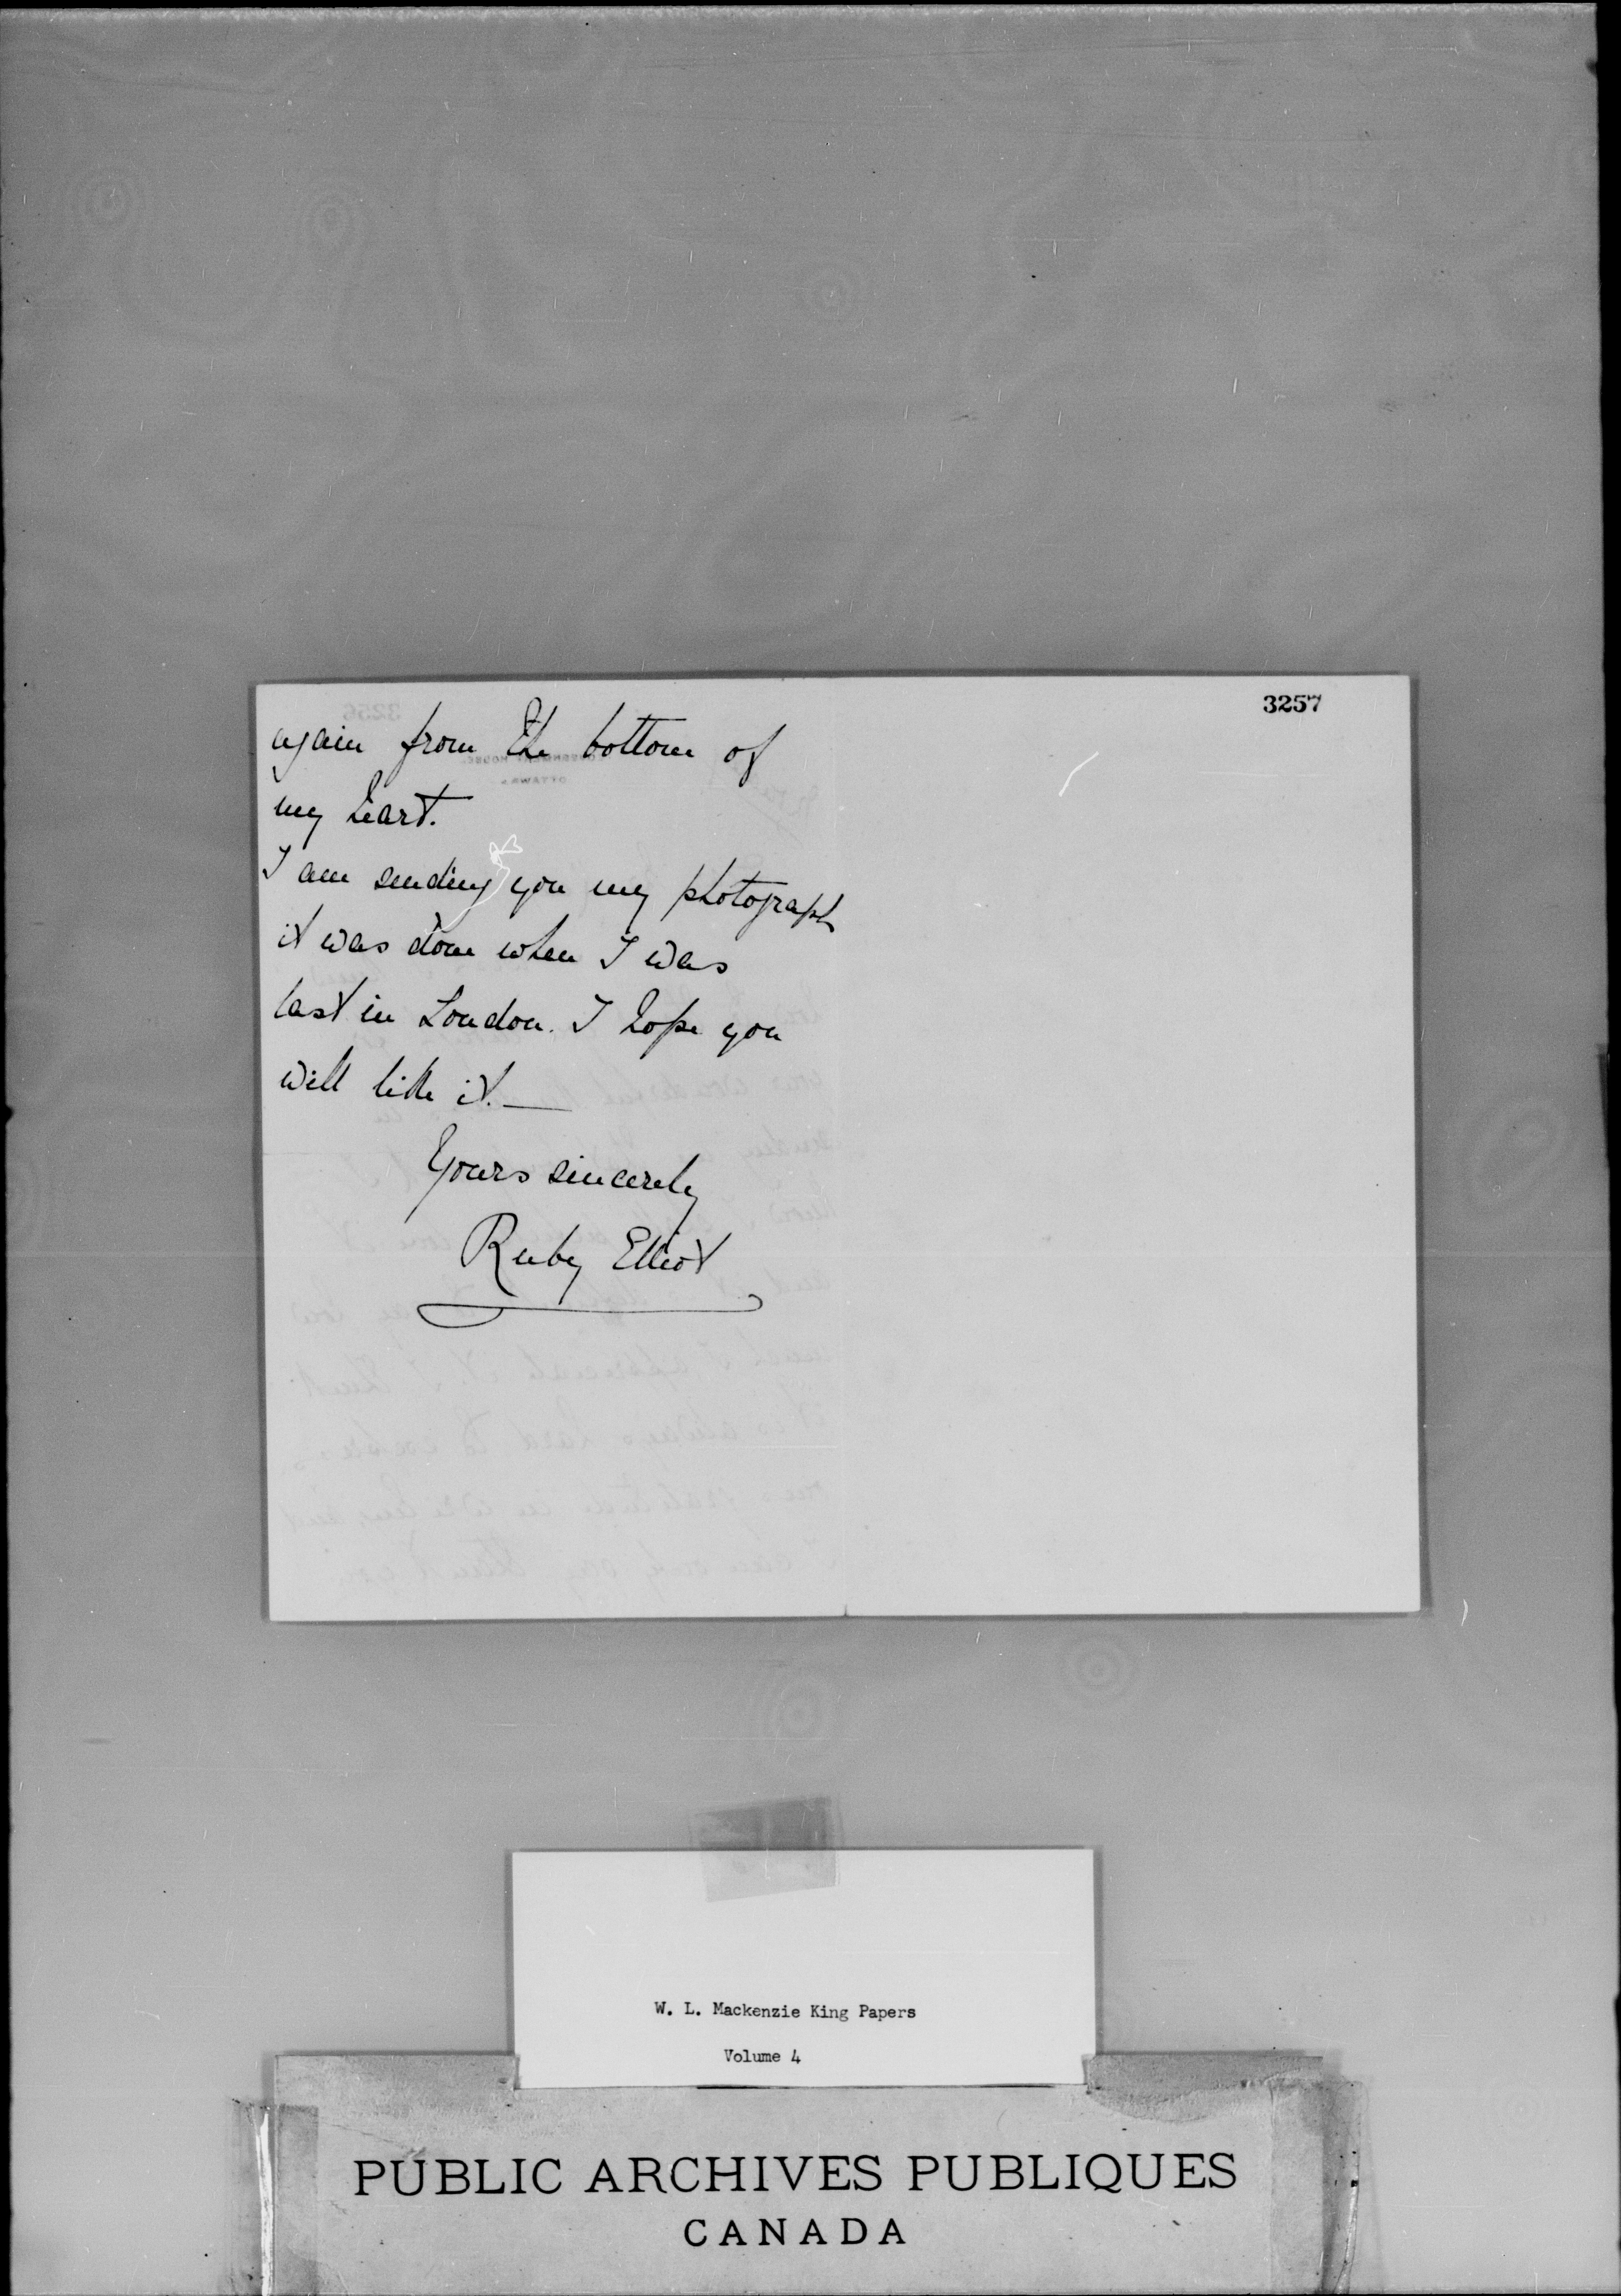 3257
again from the bottom of
my heart.
I am sending you my photograph
it was done when I was
last in London. I hope you
will like it.—
Yours sincerely
Ruby Elliot
W. L. Mackenzie King Papers
Volume 4
PUBLIC ARCHIVES PUBLIQUES
CANADA